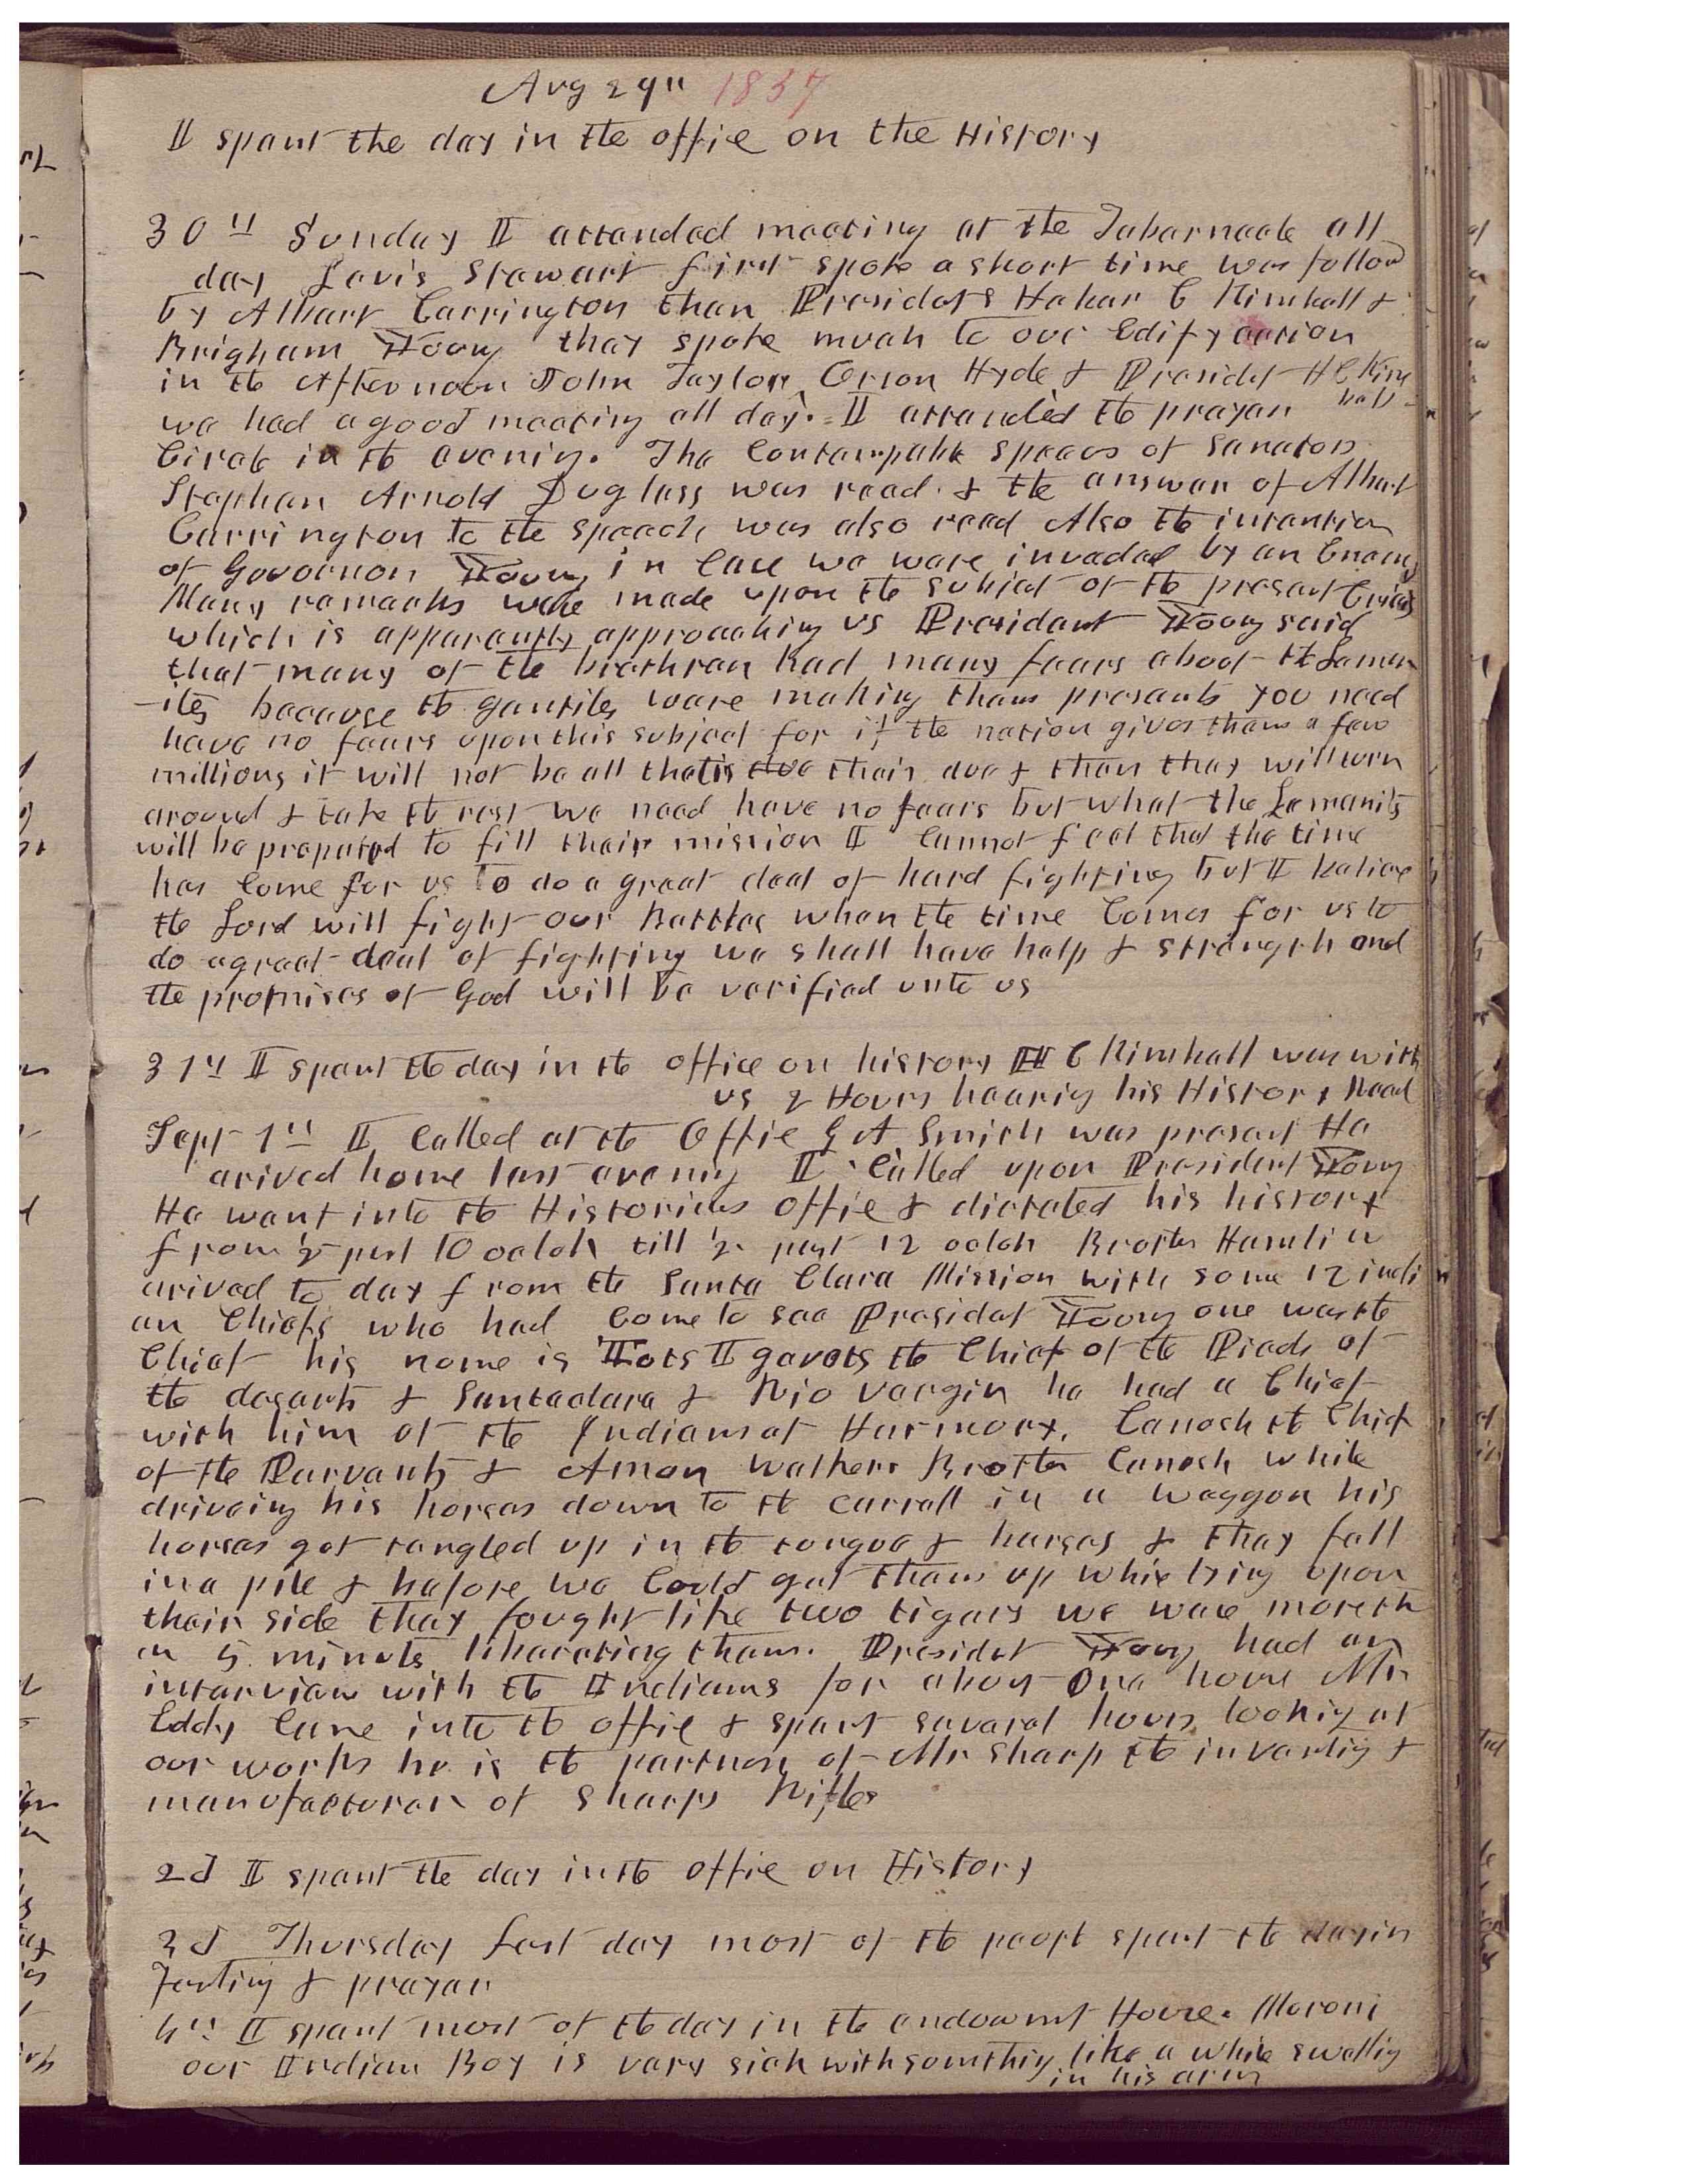 Aug 29" 1857
I spent the day in the office on the History
30" Sunday I attended meeting at the Tabernacle all
day Levi Stewart first spoke a short time was follow
by Albert Carrington then Presidets Heber C Kimball &
Brigham Young they spoke much to our Edifycation
in the Afternoon John Taylor, Orson Hyde & Presidet H C Kim
ball
we had a good meeting all day. I attended the prayer
Circle in the evenin. The Contemptable speees of Senator
Stephen Arnold Duglass was read & the answer of Albert
Carrington to the speech was also read Also the intention
of Govornor Young in Case we were invaded by an Enemy
Many remarks were made upon the subjet of the present Crisis
which is apparently approaching us President Young said
that many of the brethren had many fears about the Laman
-ites because the gentiles were making them presents you need
have no fears upon this subject for if the nation gives them a few
millions it will not be all that is due their due & then they will turn
around & take the rest we need have no fears but what the Lamanits
will be prepared to fill their mission I Cannot feel that the time
has Come for us to do a great deal of hard fighting but I believe
the Lord will fight our Battles when the time Comes for us to
do a great deal of fighting we shall have help & strength and
the promises of God will be verified unto us
31st I spent the day in the office on history H C Kimball was with
us 2 Hours hearing his History Read
Sept 1st I Called at the Offie G A Smith was present He
arived home last evening I Called upon President Young
He went into the Historians offie & dictated his history
from ½ past 10 oclok till ½ past 12 oclok Brother Hamlin
arived to day from the Santa Clara Mission with some 12 indi
an Chiefs who had Come to see Presidet Young one was the
Chief his nome is Tots I gavets the Chief of the Piads of
the deserts & Santaclara & Rio Vergin he had a Chief
with him of the Indians at Harmony, Canosh the Chief
of the Parvants & Amon Walkers Brother Canosh while
driveing his horses down to the carrall in a waggon his
horses got tangled up in the tongue & harses & they fell
in a pile & before we Could get them up whie lying upon
their side they fought like two tigers we were moreth
an 5 minuts liberating them. Presidet Young had an
interview with the Indians for about One hour Mr
Eddy Came into the offie & spent several hours lookig at
our works he is the partner of Mr Sharp the inventig &
manufacturer of Sharps Rifles
2d I spent the day in the offie on History
3d Thursday fast day most of the peopl spent the day in
Fasting & prayer
4th I spent most of the day in the endowmt House. Moroni
our Indian Boy is very sick with somthig like a white swellig
in his arm